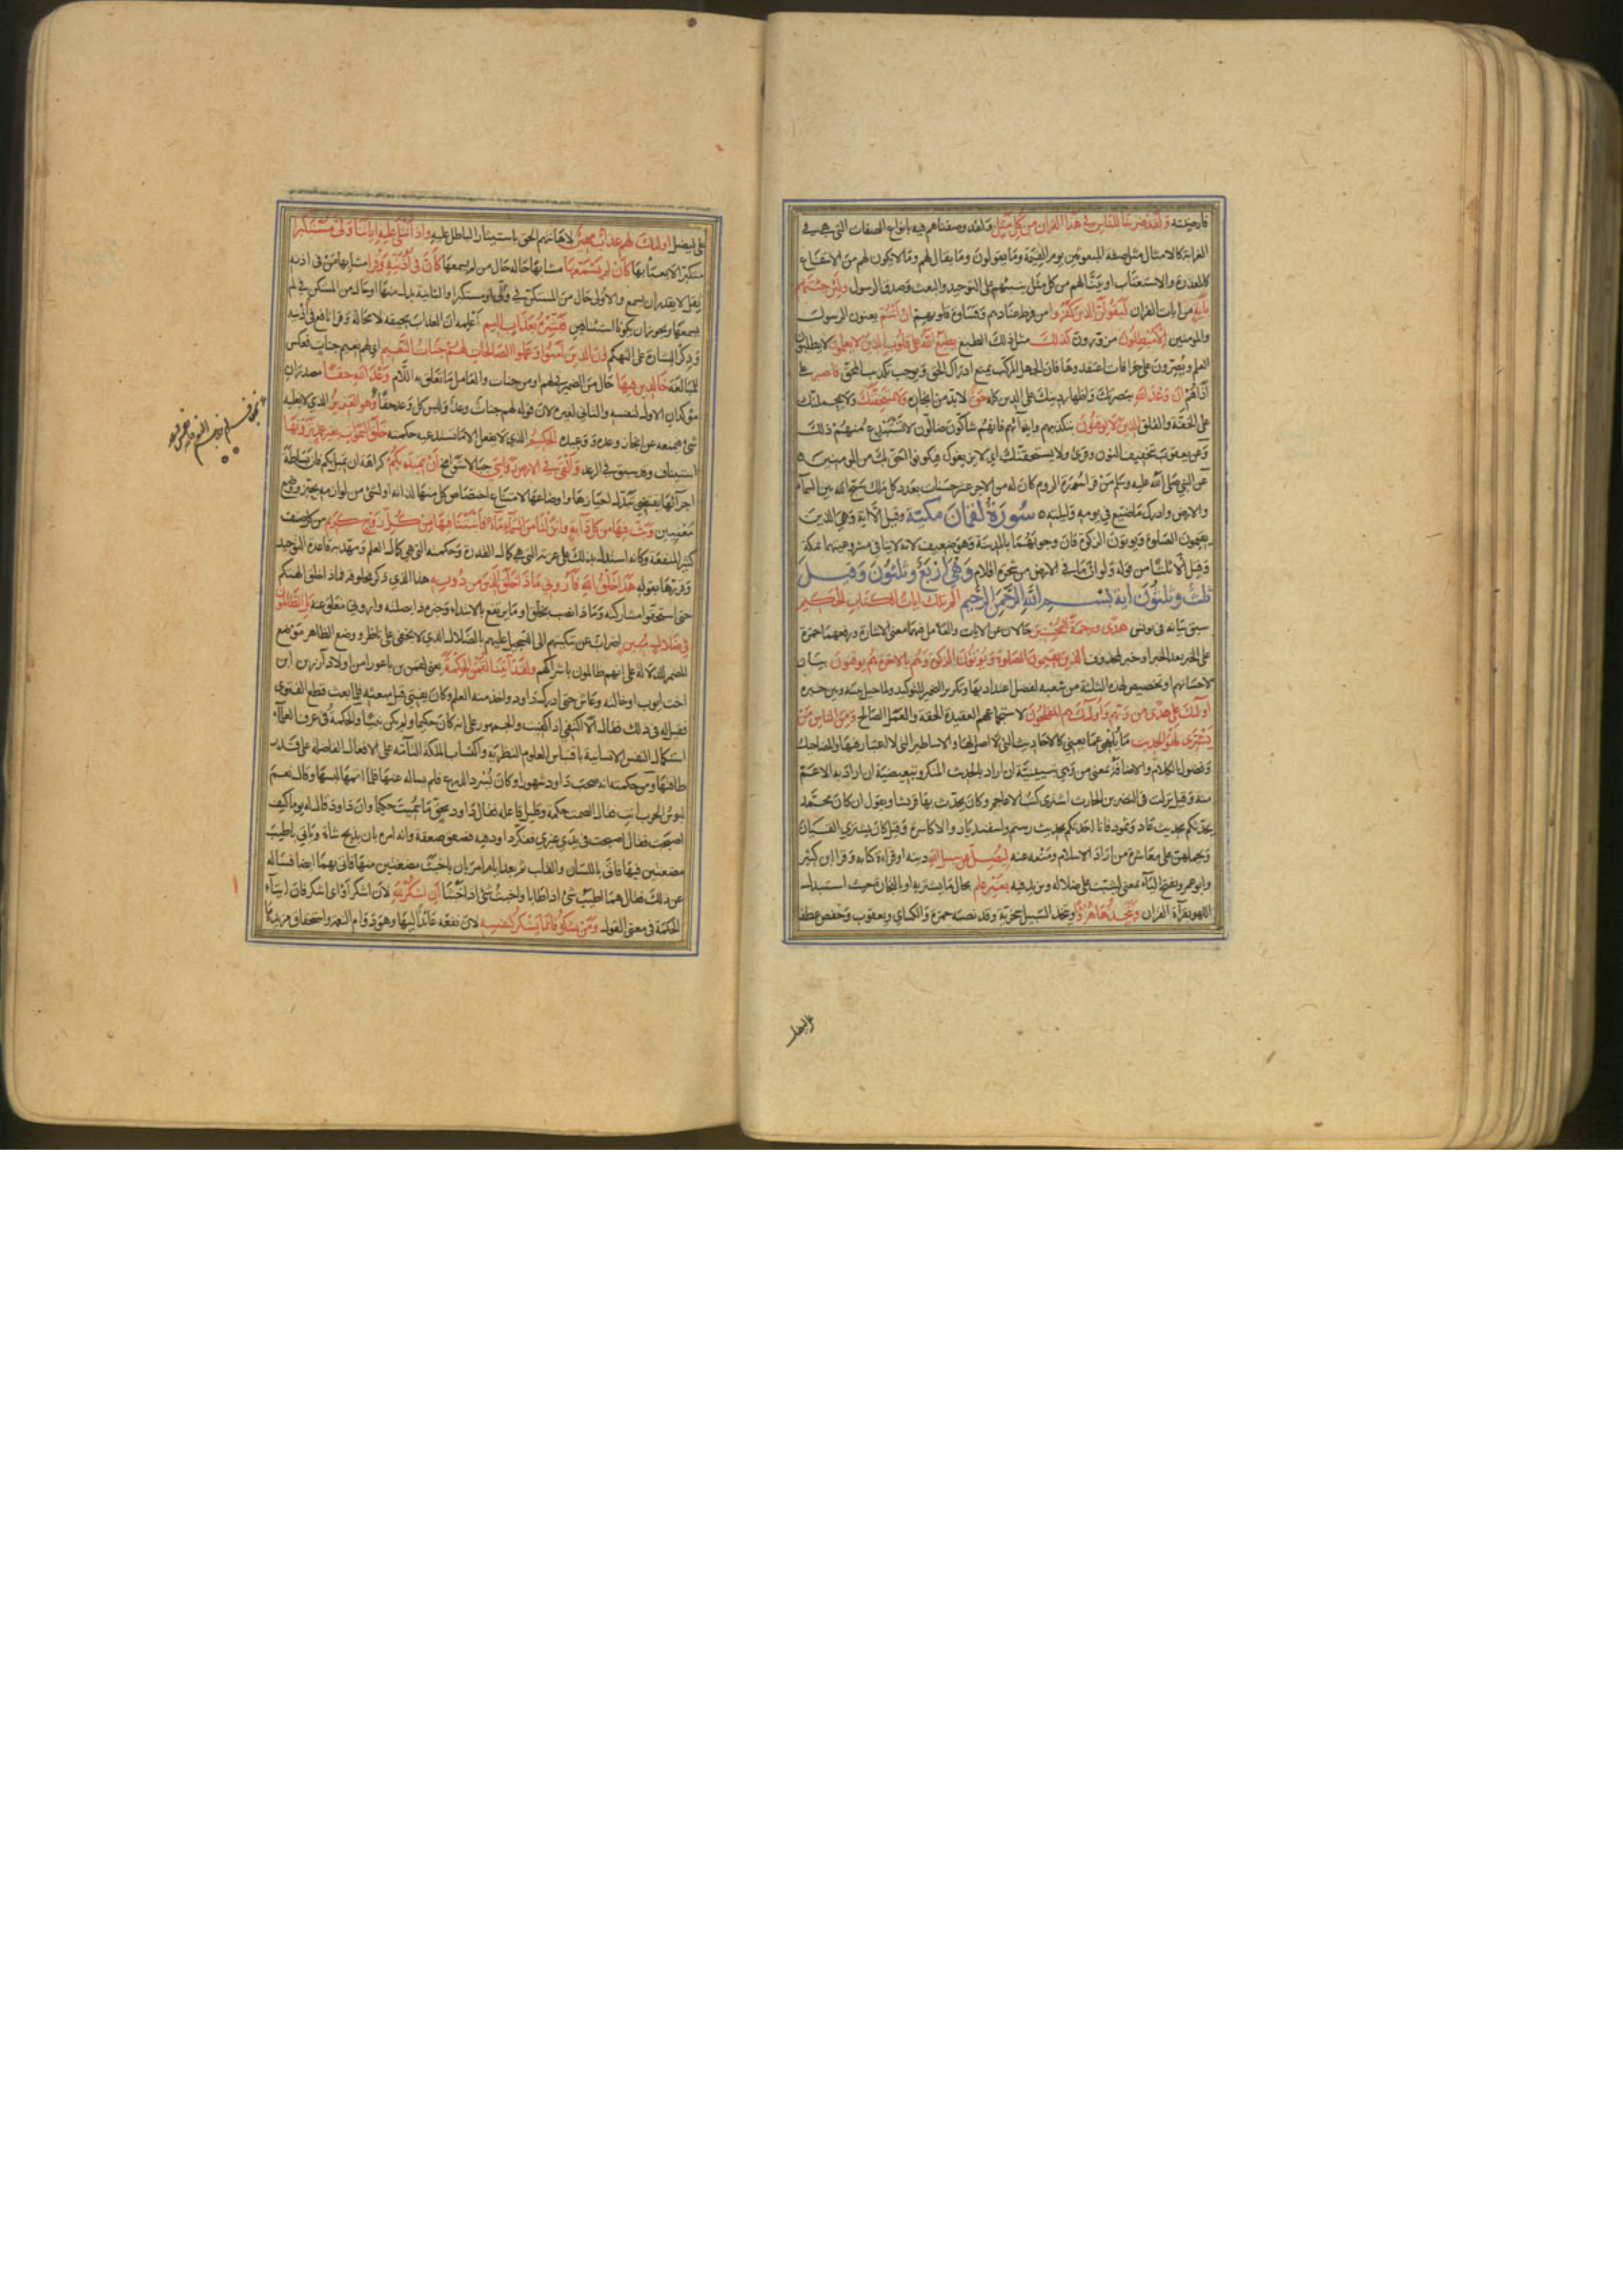 فارضيته ولقد ضربنا للناس في هذا القران من كل مثل ولقد وصفناهم فيه بانواع الصفات التي هي في
الغرابة كالامثال مثل صفة المبعوثين يوم القيمة وما يقولون وما يقال لهم وما لا يكون لهم من الانتفاع
بالمعذرة والاستعتاب او بيّنا لهم من كل مثل ينبئهم على التوحيد والبعث وصدق الرسول ولئن جئتهم
بآية من ايات القران ليقولن الذين كفروا من فرط عنادهم وقساوة قلوبهم ان انتم يعنون الرسول
والمؤمنين الا مبطلون مزورون كذلك مثل ذلك الطبع يطبع الله على قلوب الذين لا يعلمون لا يطلبون
العلم ويصرون على خرافات اعتقدوها فان الجهل المركب يمنع ادراك الحق ويوجب تكذيب المحق فاصبر على
اذاهم ان وعد الله بنصرتك واظهار دينك على الدين كله حق لا بد من انجازه ولا يستخفنك ولا يحملنك
على الخفة والقلق الذين لا يوقنون بتكذيبهم وايذائهم فانهم شاكون ضالون لا يستبدع منهم ذلك
وعن يعقوب تخفيف النون وقرئ ولا يستحقنك اي لا يزيغوك فيكونوا احق بك من المؤمنين
عن النبي صلى الله عليه وسلم من قرا سورة الروم كان له من الاجر عشر حسنات بعدد كل ملك سبح الله بين السماء
والارض وادرك ما ضيع في يومه وليلته سورة لقمان مكية وقيل الا اية وهي الذين
يقيمون الصلوة ويؤتون الزكوة فان وجوبهما بالمدينة وهو ضعيف لانه لا ينافي مشروعيتهما بمكة
وقيل الا ثلثا من قوله ولو ان ما في الارض من شجرة اقلام وهي اربع وثلثون وقيل
ثلث وثلثون آية بسم الله الرحمن الرحيم الم تلك ايات الكتاب الحكيم
سبق بيانه في يونس هدى ورحمة للمحسنين حالان عن الايات والعامل فيهما معنى الاشارة ورفعهما حمزة
على الخبر بعد الخبر او خبر لمحذوف الذين يقيمون الصلوة ويؤتون الزكوة وهم بالاخرة هم يوقنون بيان
لاحسانهم او تخصيص لهذه الثلثة من شعبه لفضل اعتداد بها وتكرير الضمير للتوكيد ولما حيل بينه وبين خبره
اولئك على هدى من ربهم واولئك هم المفلحون لاستجماعهم العقيدة الحقة والعمل الصالح ومن الناس من
يشتري لهو الحديث ما يلهي عما يعني كالاحاديث التي لا اصل لها والاساطير التي لا اعتبار فيها والمضاحك
وفضول الكلام والاضافة بمعنى من وهي تبيينية ان اراد بالحديث المنكر وتبعيضية ان اراد به الاعم
منه وقيل نزلت في النضر بن الحارث اشترى كتب الاعاجم وكان يحدث بها قريشا ويقول ان كان محمد
يحدثكم بحديث عاد وثمود فانا احدثكم بحديث رستم واسفنديار والاكاسرة وقيل كان يشتري القيان
ويحملهن على معاشرة من اراد الاسلام ومنعه عنه ليضل عن سبيل الله دينه او قراءة كتابه وقرا ابن كثير
وابو عمرو بفتح الياء بمعنى ليثبت على ضلاله ويزيد فيه بغير علم بحال ما يشتريه او بالتجارة حيث استبدل
اللهو بقراءة القران ويتخذها هزوا ويتخذ السبيل سخرية وقد نصبه حمزة والكسائي ويعقوب وحفص عطفا
على ليضل اولئك لهم عذاب مهين لاهانتهم الحق باستيثار الباطل عليه واذا تتلى عليه اياتنا ولى مستكبرا
متكبرا لا يعبأ بها كان لم يسمعها مشابها حاله حال من لم يسمعها كان في اذنيه وقرا مشابها من في اذنيه
ثقل لا يقدر ان يسمع والاولى حال من المستكن في ولى او مستكبرا والثانية بدل منها او حال من المستكن في لم
يسمعها ويجوز ان يكونا استئنافين فبشره بعذاب اليم اعلمه ان العذاب يحيقه لا محالة وقرا نافع في اذنيه
وذكر البشارة على التهكم ان الذين آمنوا وعملوا الصالحات لهم جنات النعيم اي لهم نعيم جنات فعكس
للمبالغة خالدين فيها حال من الضمير في لهم او من جنات والعامل ما تعلق به اللام وعد الله حقا مصدران
مؤكدان الاول لنفسه والثاني لغيره لان قوله لهم جنات وعد وليس كل وعد حقا وهو العزيز الذي لا يغلبه
شئ فيمنعه عن انجاز وعده ووعيده الحكيم الذي لا يفعل الا ما تستدعيه حكمته خلق السموات بغير عمد ترونها
استيناف وقد سبق في الرعد والقى في الارض رواسي جبالا شوامخ ان تميد بكم كراهة ان تميل بكم فان بساطة
اجزائها يقتضي تبدل احيازها واوضاعها لامتناع اختصاص كل منها لذاته او لشئ من لوازمه بحيز ووضع
معينين وبث فيها من كل دابة وانزلنا من السماء ماء فانبتنا فيها من كل زوج كريم من كل صنف
كثير المنفعة وكانه استدل بذلك على عزته التي هي كمال القدرة وحكمته التي هي كمال العلم ومهد به قاعدة التوحيد
وقررها بقوله هذا خلق الله فاروني ماذا خلق الذين من دونه هذا الذي ذكر مخلوقه فماذا خلق الهتكم
حتى استحقوا مشاركته وماذا نصب بخلق او ما مرتفع بالابتداء وخبره ذا بصلته واروني معلق عنه بل الظالمون
في ضلال مبين اضراب عن تبكيتهم الى التسجيل عليهم بالضلال الذي لا يخفى على ناظر ووضع الظاهر موضع
المضمر للدلالة على انهم ظالمون باشراكهم ولقد آتينا لقمن الحكمة يعني لقمن بن باعورا من اولاد آزر بن اخت
ايوب او خالته وعاش حتى ادرك داود واخذ منه العلم وكان يفتي قبل مبعثه فلما بعث قطع الفتوى
فقيل له في ذلك فقال الا اكتفي اذا كفيت والجمهور على انه كان حكيما ولم يكن نبيا والحكمة في عرف العلماء
استكمال النفس الانسانية باقتباس العلوم النظرية واكتساب الملكة التامة على الافعال الفاضلة على قدر
طاقتها ومن حكمته انه صحب داود شهورا وكان يسرد الدرع فلم يساله عنها فلما اتمها لبسها وقال نعم
لبوس الحرب انت فقال الصمت حكمة وقليل فاعله فقال داود بحق ما سميت حكيما وان داود قال له يوما كيف
اصبحت فقال اصبحت في يدي غيري فتفكر داود فيه فصعق صعقة وانه امره بان يذبح شاة وياتي باطيب
مضغتين فيها فاتى باللسان والقلب ثم بعد ايام امر بان ياتي باخبث مضغتين منها فاتى بهما ايضا فساله
عن ذلك فقال هما اطيب شئ اذا طابا واخبث شئ اذا خبثا ان اشكر لله لان اشكر او اي اشكر فان ايتاء
الحكمة في معنى القول ومن يشكر فانما يشكر لنفسه لان نفعه عائد اليها وهو دوام النعمة واستحقاق مزيدها